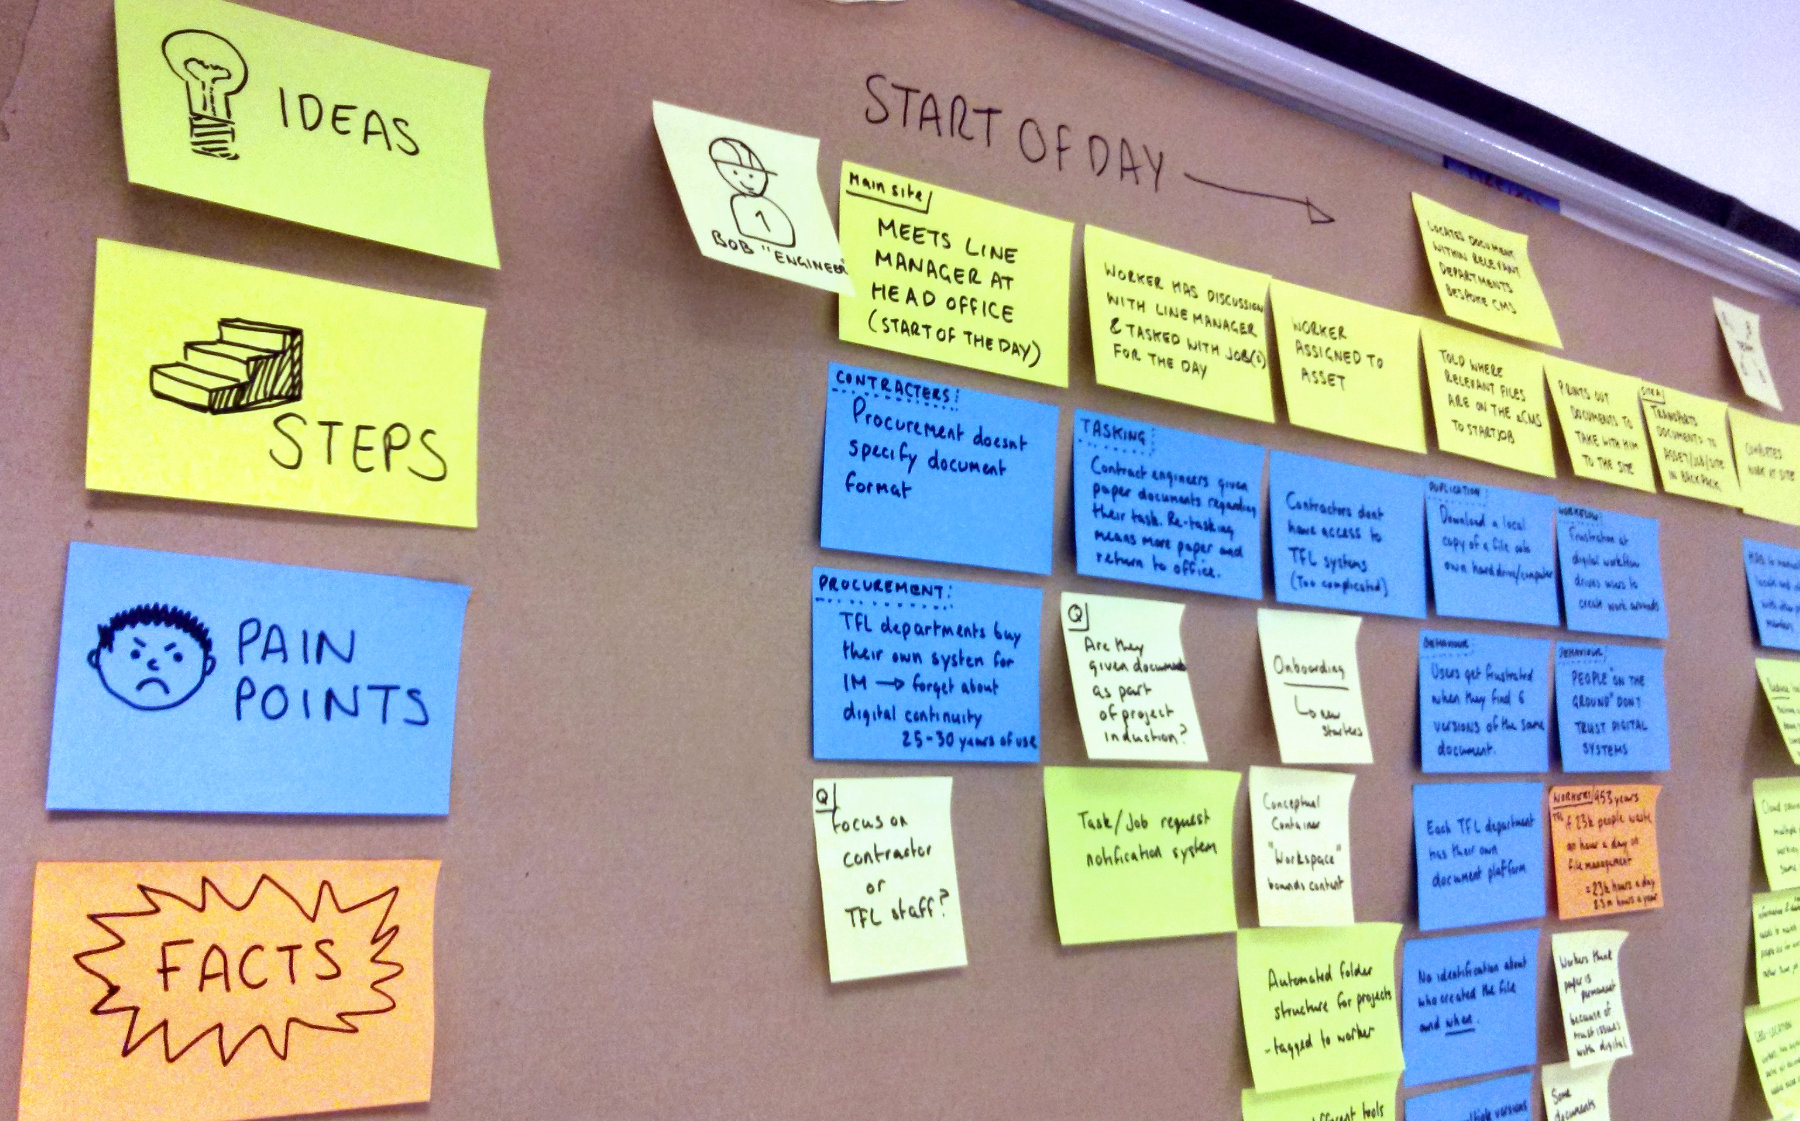 IDEAS
STEPS
PAIN
POINTS
FACTS
START OF DAY
1
BOB "ENGINEER"
Main site
MEETS LINE
MANAGER AT
HEAD OFFICE
(START OF THE DAY)
WORKER HAS DISCUSSION
WITH LINE MANAGER
& TASKED WITH JOB(S)
FOR THE DAY
WORKER
ASSIGNED TO
ASSET
LOCATES DOCUMENT
WITHIN RELEVANT
DEPARTMENTS
BESPOKE CMS
TOLD WHERE
RELEVANT FILES
ARE ON THE eCMS
TO START JOB
PRINTS OUT
DOCUMENTS TO
TAKE WITH HIM
TO THE SITE
TRANSPORTS
DOCUMENTS TO
ASSET/JOB/SITE
IN BACKPACK
COMPLETES
WORK AT SITE
CONTRACTERS:
Procurement doesnt
specify document
format
TASKING:
Contract engineers given
paper documents regarding
their task. Re-tasking
means more paper and
return to office.
Contractors dont
have access to
TFL systems
(Too complicated)
DUPLICATION:
Download a local
copy of a file onto
own harddrive/computer
WORKFLOW:
Frustration at
digital workflow
drives users to
create work arounds
PROCUREMENT:
TFL departments buy
their own system for
IM → forget about
digital continuity
25-30 years of use
Q
Are they
given documents
as part
of project
induction?
Onboarding
new
starters
BEHAVIOUR:
Users get frustrated
when they find 6
versions of the same
document.
BEHAVIOUR:
PEOPLE "ON THE
GROUND" DON'T
TRUST DIGITAL
SYSTEMS
Q
Focus on
contractor
or
TFL staff?
Task/Job request
notification system
Conceptual
Container
"Workspace"
bounds content
Each TFL department
has their own
document platform
WORKERS 953 years
TFL if 23k people waste
an hour a day on
file management
= 23k hours a day
8.3m hours a year
Automated folder
structure for projects
- tagged to worker
No identification about
who created the file
and when.
Workers think
paper is
permanent
because of
trust issues
with digital
tools
versions
Some
documents